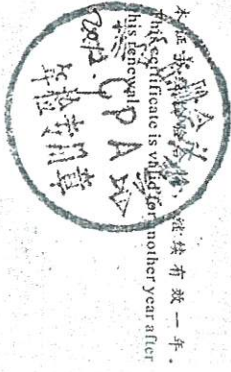 本证书经检验合格,继续有效一年。
This certificate is valid for another year after
this renewal.
2012.
CPA
年检专用章